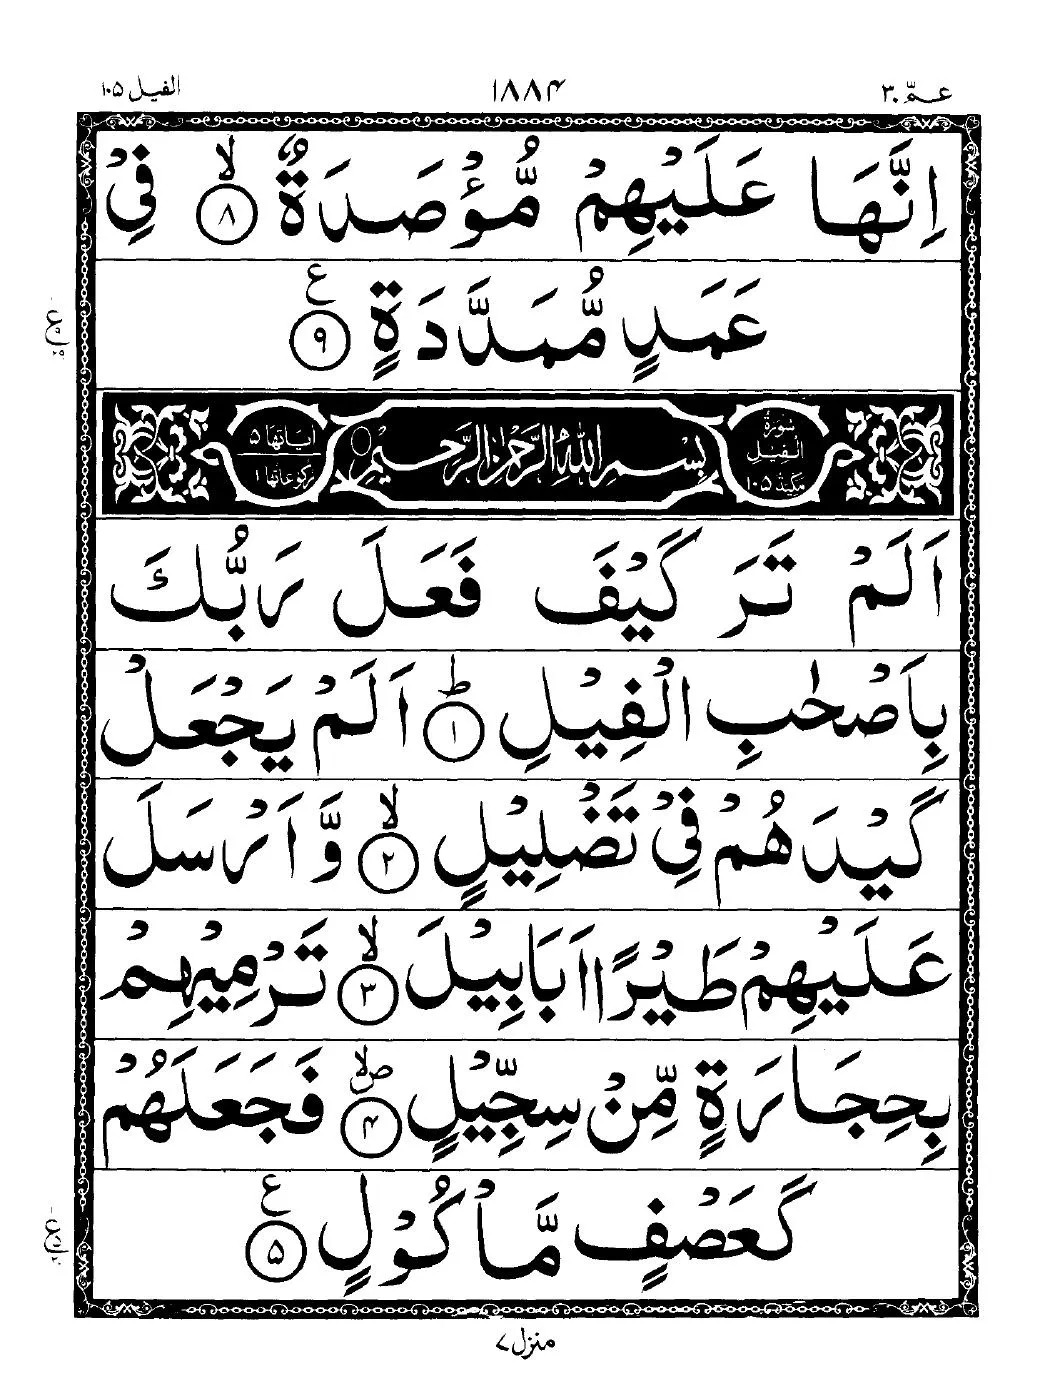 عمّ ٣٠ ١٨٨۴ الفيل ١٠٥
اِنَّهَا عَلَيْهِمْ مُّؤْصَدَةٌ ۙ ٨ فِيْ
عَمَدٍ مُّمَدَّدَةٍ ع ٩
سُورَةُ الْفِيْل مَكِّيَّة ١٠٥ بِسْمِ اللّٰهِ الرَّحْمٰنِ الرَّحِيْمِ اٰيَاتُهَا ٥ رُكُوْعَاتُهَا ١
اَلَمْ تَرَ كَيْفَ فَعَلَ رَبُّكَ
بِاَصْحٰبِ الْفِيْلِ ؕ ١ اَلَمْ يَجْعَلْ
كَيْدَهُمْ فِيْ تَضْلِيْلٍ ۙ ٢ وَّاَرْسَلَ
عَلَيْهِمْ طَيْرًا اَبَابِيْلَ ۙ ٣ تَرْمِيْهِمْ
بِحِجَارَةٍ مِّنْ سِجِّيْلٍ ۪ۙ ۴ فَجَعَلَهُمْ
كَعَصْفٍ مَّاْكُوْلٍ ع ٥
منزل ٧